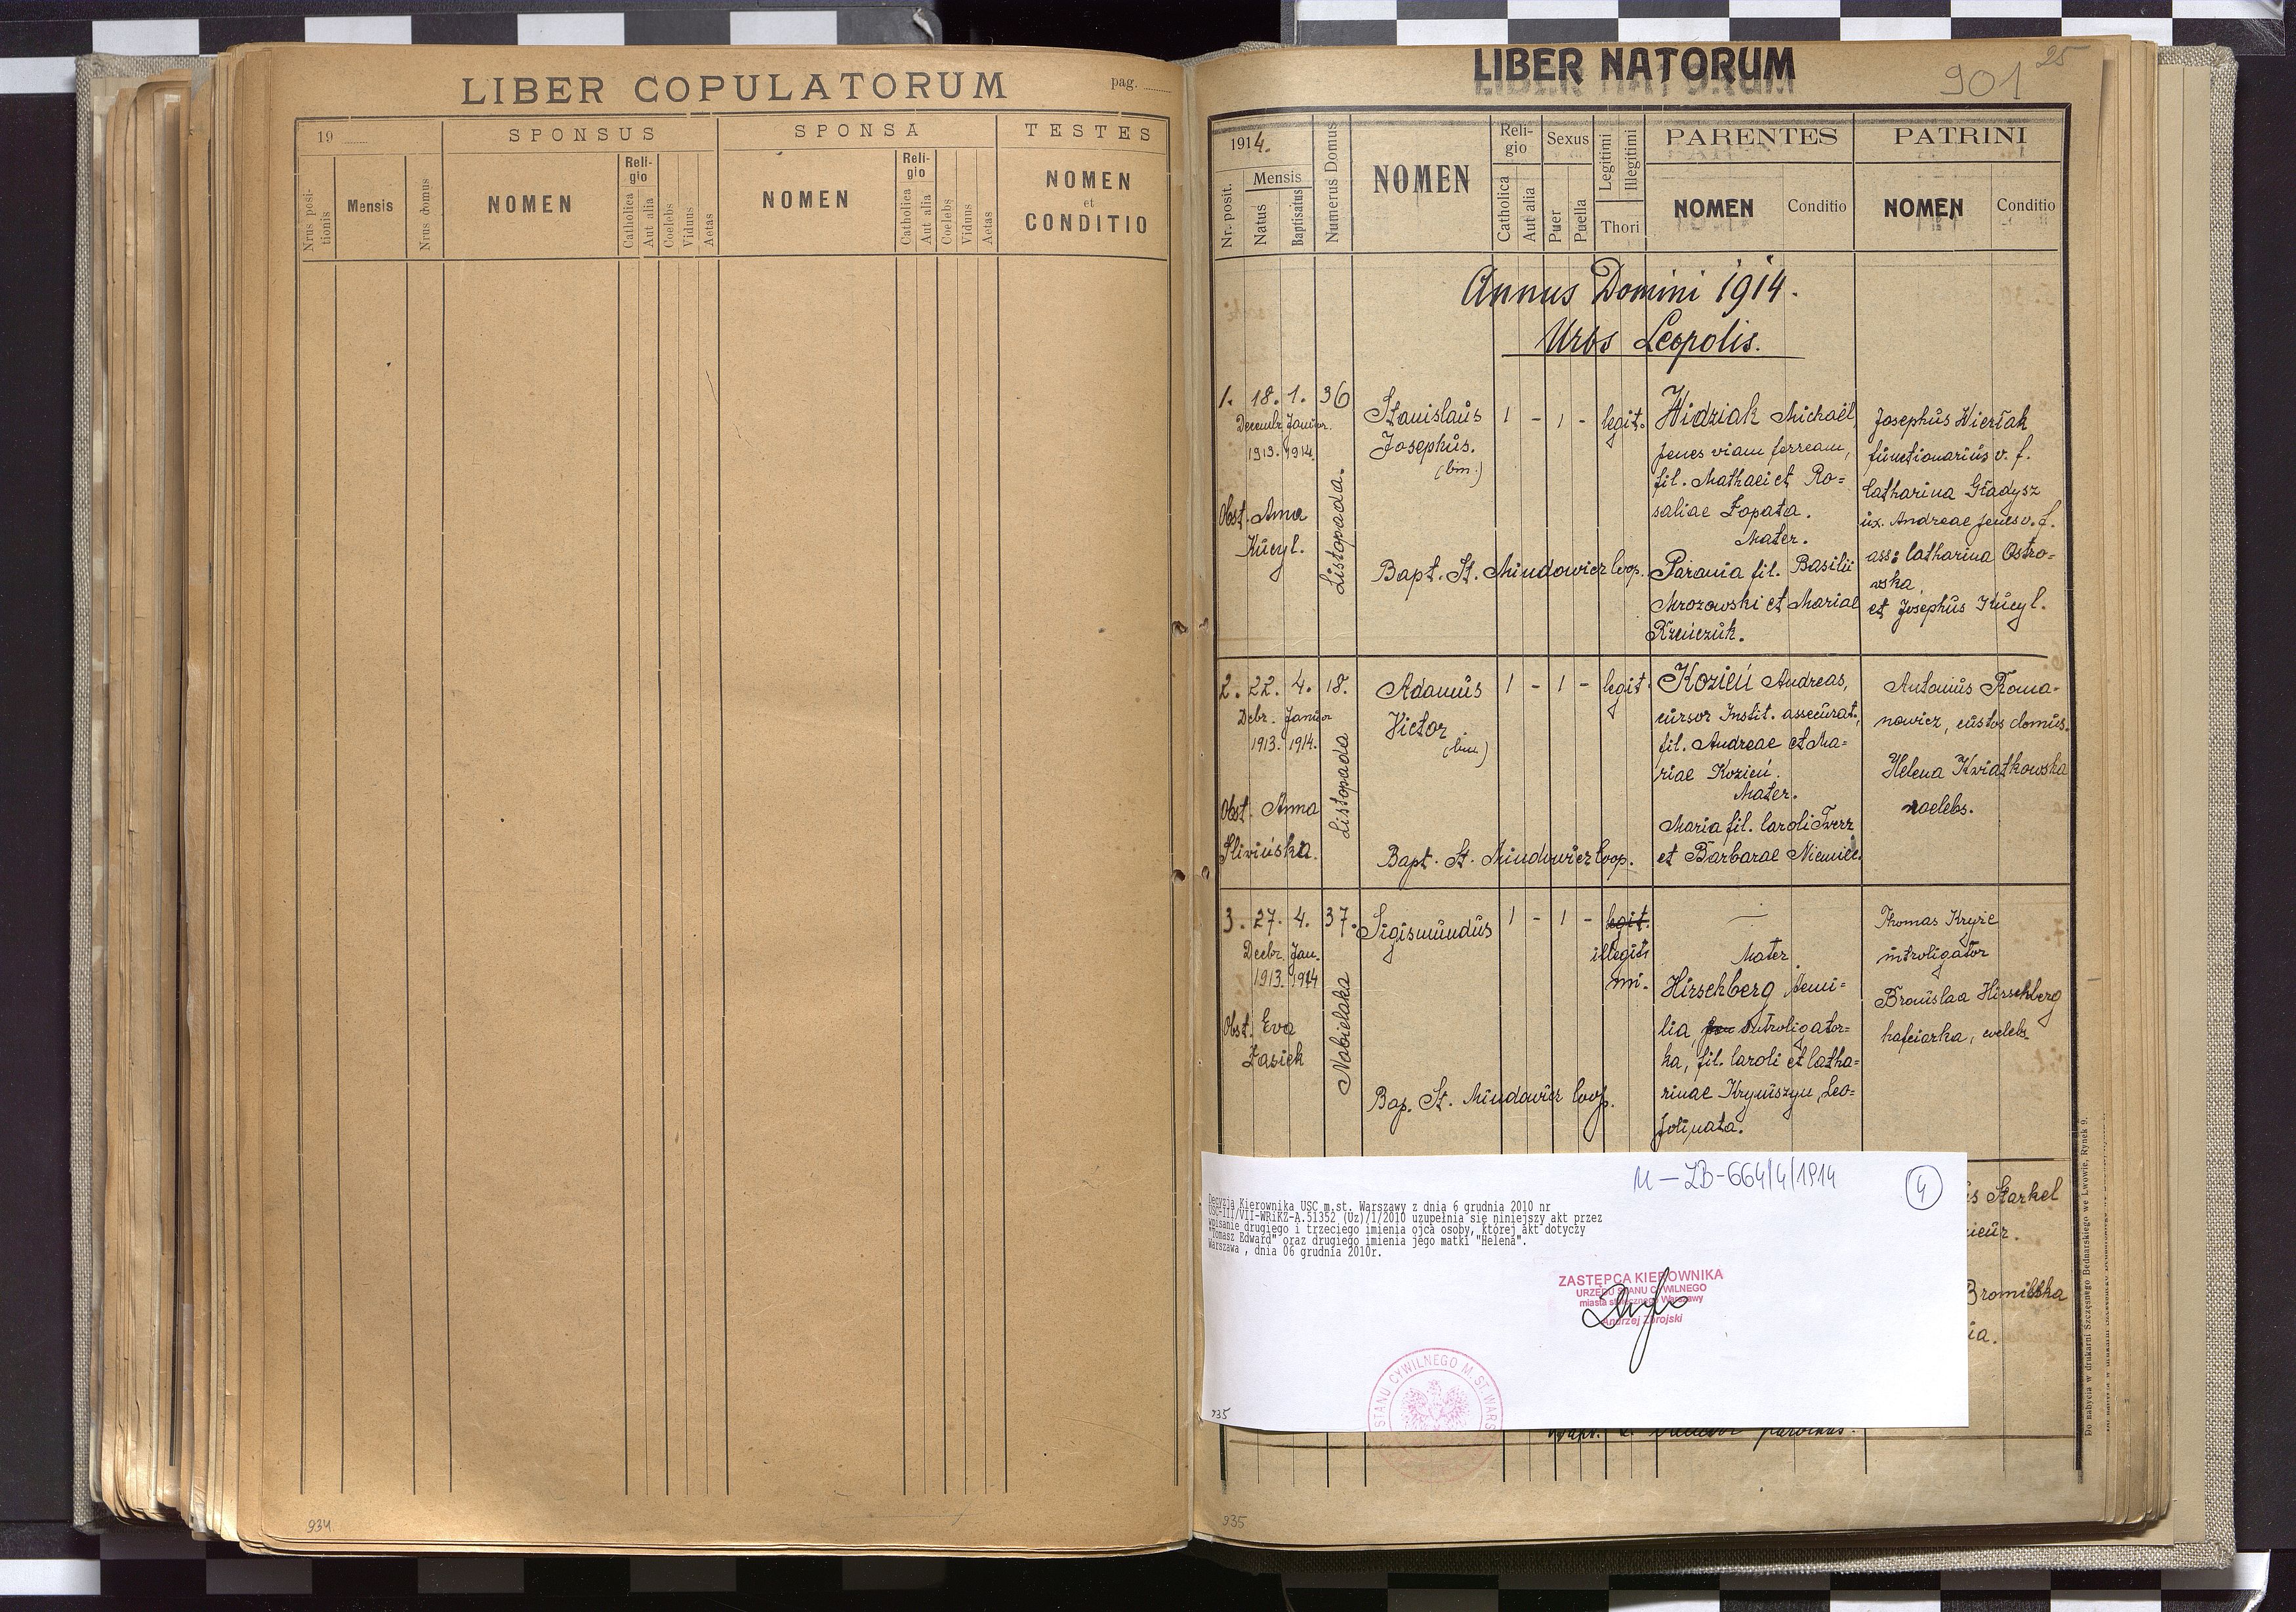 LIBER COPULATORUM
pag.
19
SPONSUS
SPONSA
TESTES
Nrus positionis
Mensis
Nrus domus
NOMEN
Religio
Catholica
Aut alia
Coelebs
Viduus
Aetas
NOMEN
Religio
Catholica
Aut alia
Coelebs
Viduus
Aetas
NOMEN
et
CONDITIO
934
LIBER NATORUM
901
25
1914.
Nr. posit.
Mensis
Natus
Baptisatus
Numerus Domus
NOMEN
Religio
Catholica
Aut alia
Sexus
Puer
Puella
Legitimi
Illegitimi
Thori
PARENTES
NOMEN
Conditio
PATRINI
NOMEN
Conditio
Annus Domini 1914.
Urbs Leopolis.
1. 18. 1. 36
Decembr. Januar.
1913. 1914.
Listopada.
Obst. Anna
Kucyl.
Stanislaus
Josephus.
(bin.)
1 - 1 - legit.
Bapt. St. Mindowicz Coop.
Widziak Michaël,
penes viam ferream,
fil. Mathaei et Ro=
saliae Łopata.
Mater.
Parania fil. Basilii
Mrozowski et Mariae
Josephus Wierzak
functionarius v. f.
Catharina Gładysz
ux. Andreae penes v. f.
ass: Catharina Ostro=
wska
et Josephus Kucyl.
2. 22. 4. 18.
Debr. Januar
1913. 1914.
Listopada
Obst. Anna
Śliwińska.
Adamus
Victor
(bin.)
1 - 1 - legit.
Bapt. St. Mindowicz Coop.
Kozień Andreas,
cursor Instit. assecurat.,
fil. Andreae et Ma=
riae Kozień.
Mater.
Maria fil. Caroli Twerz
et Barbarae Niemiec.
Antonius Roma=
nowicz, custos domus.
Helena Kwiatkowska
3. 27. 4. 37.
Decbr. Jan.
1913. 1914
Nabielaka
Obst. Eva
Łasiek
Sigismundus
1 - 1 - legit.
illegiti
mi.
Bap. St. Mindowicz Coop.
Mater.
Hirschberg Aemi=
lia, introligator=
ka, fil. Caroli et Catha=
rinae Kryniszyn, Leo=
poli nata.
Thomas Kryie
introligator
Bronislaa Hirschberg
hafciarka, coelebs.
M-ZB-664/4/1914
4
Decyzją Kierownika USC m.st. Warszawy z dnia 6 grudnia 2010 nr
USC-III/VII-WRiKZ-A.51352 (Uz)/1/2010 uzupełnia się niniejszy akt przez
wpisanie drugiego i trzeciego imienia ojca osoby, której akt dotyczy
"Tomasz Edward" oraz drugiego imienia jego matki "Helena".
Warszawa , dnia 06 grudnia 2010r.
ZASTĘPCA KIEROWNIKA
URZĘDU STANU CYWILNEGO
miasta stołecznego Warszawy
Andrzej Zbrojski
STANU CYWILNEGO M. ST. WARS
935
Starkel
Bromilska
935
Do nabycia w drukarni Szczęsnego Bednarskiego we Lwowie, Rynek 9.